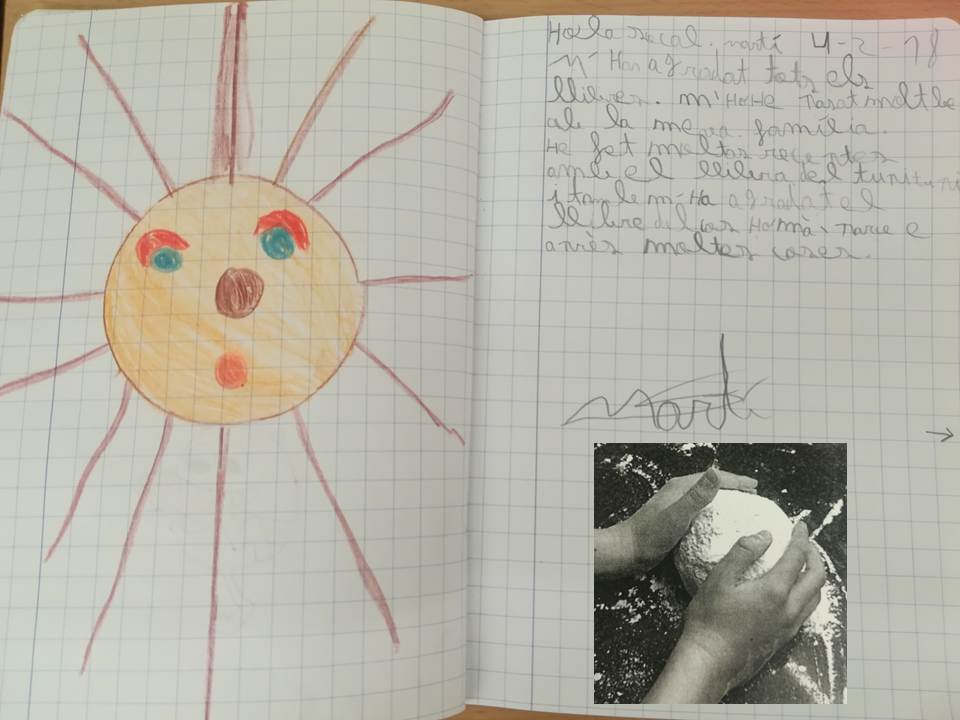 Hola socal. martí 4-2-18
M'Han agradat tots els
llibres. m'HoHe Pasat molt be
ab la meva família.
He fet moltas receptes
amb el llibre del
i també m'Ha agradat el
llibre del cos Humà. Parle e
aprés moltes coses.
Martí
→